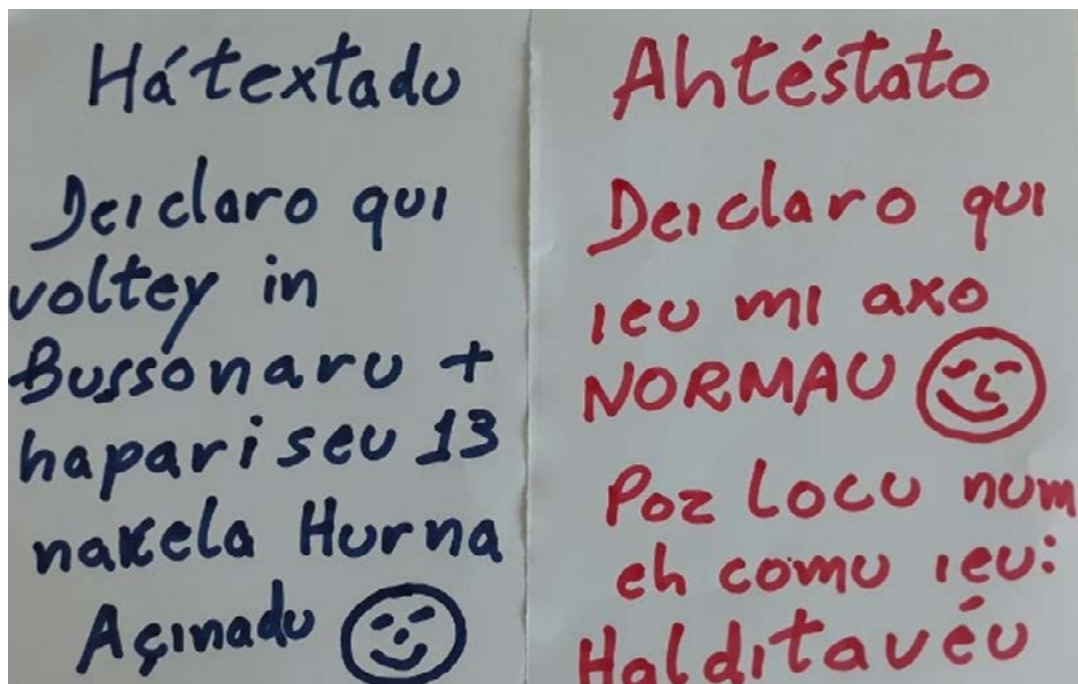 Hátextadu
Deiclaro qui
voltey in
Bussonaru +
hapariseu 13
nakela Hurna
Açinadu
Ahtéstato
Deiclaro qui
ieu mi axo
NORMAU
Poz Locu num
eh comu ieu:
Halditavéu